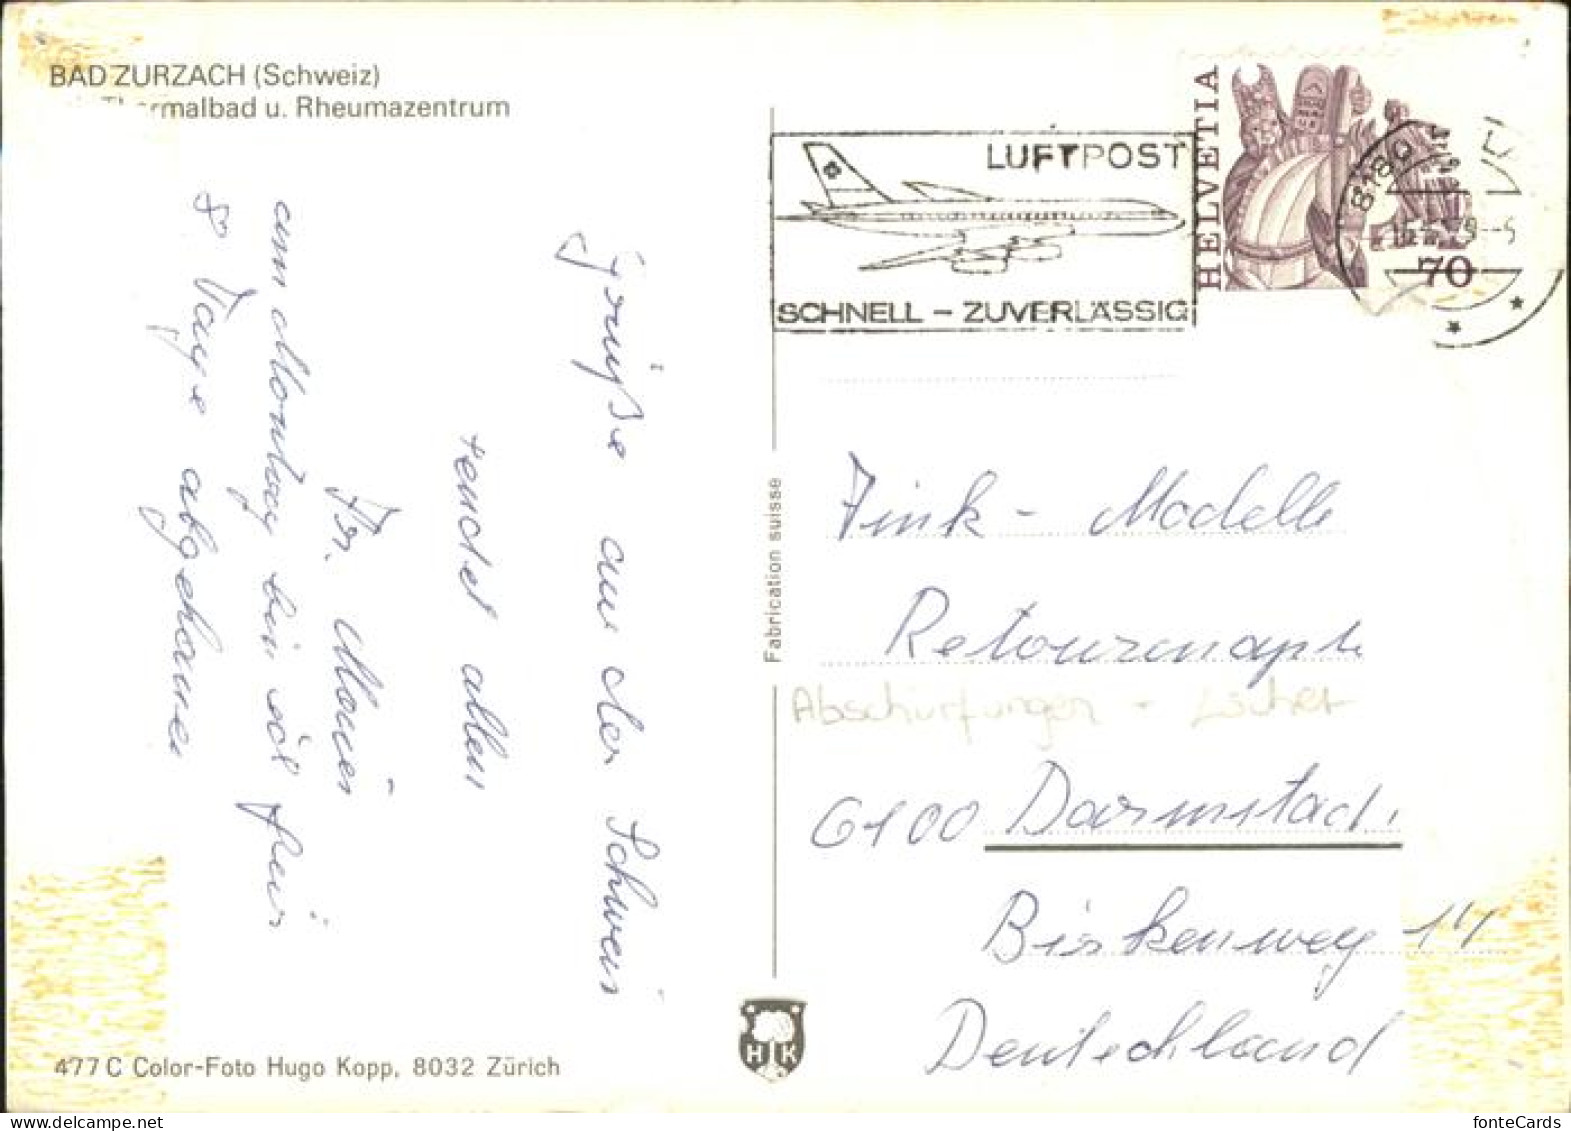 BAD ZURZACH (Schweiz)
Thermalbad u. Rheumazentrum
Grüße aus der Schweiz
sendet allen
Fr. Maier
am Montag bin ich hier
8 Tage
LUFTPOST
SCHNELL – ZUVERLÄSSIG
HELVETIA
70
8180
Fabrication suisse
Fink - Modelle
Retourenapt.
Abschürfungen + Löcher
6100 Darmstadt
Birkenweg 14
Deutschland
H K
477 C Color-Foto Hugo Kopp, 8032 Zürich
fonteCards